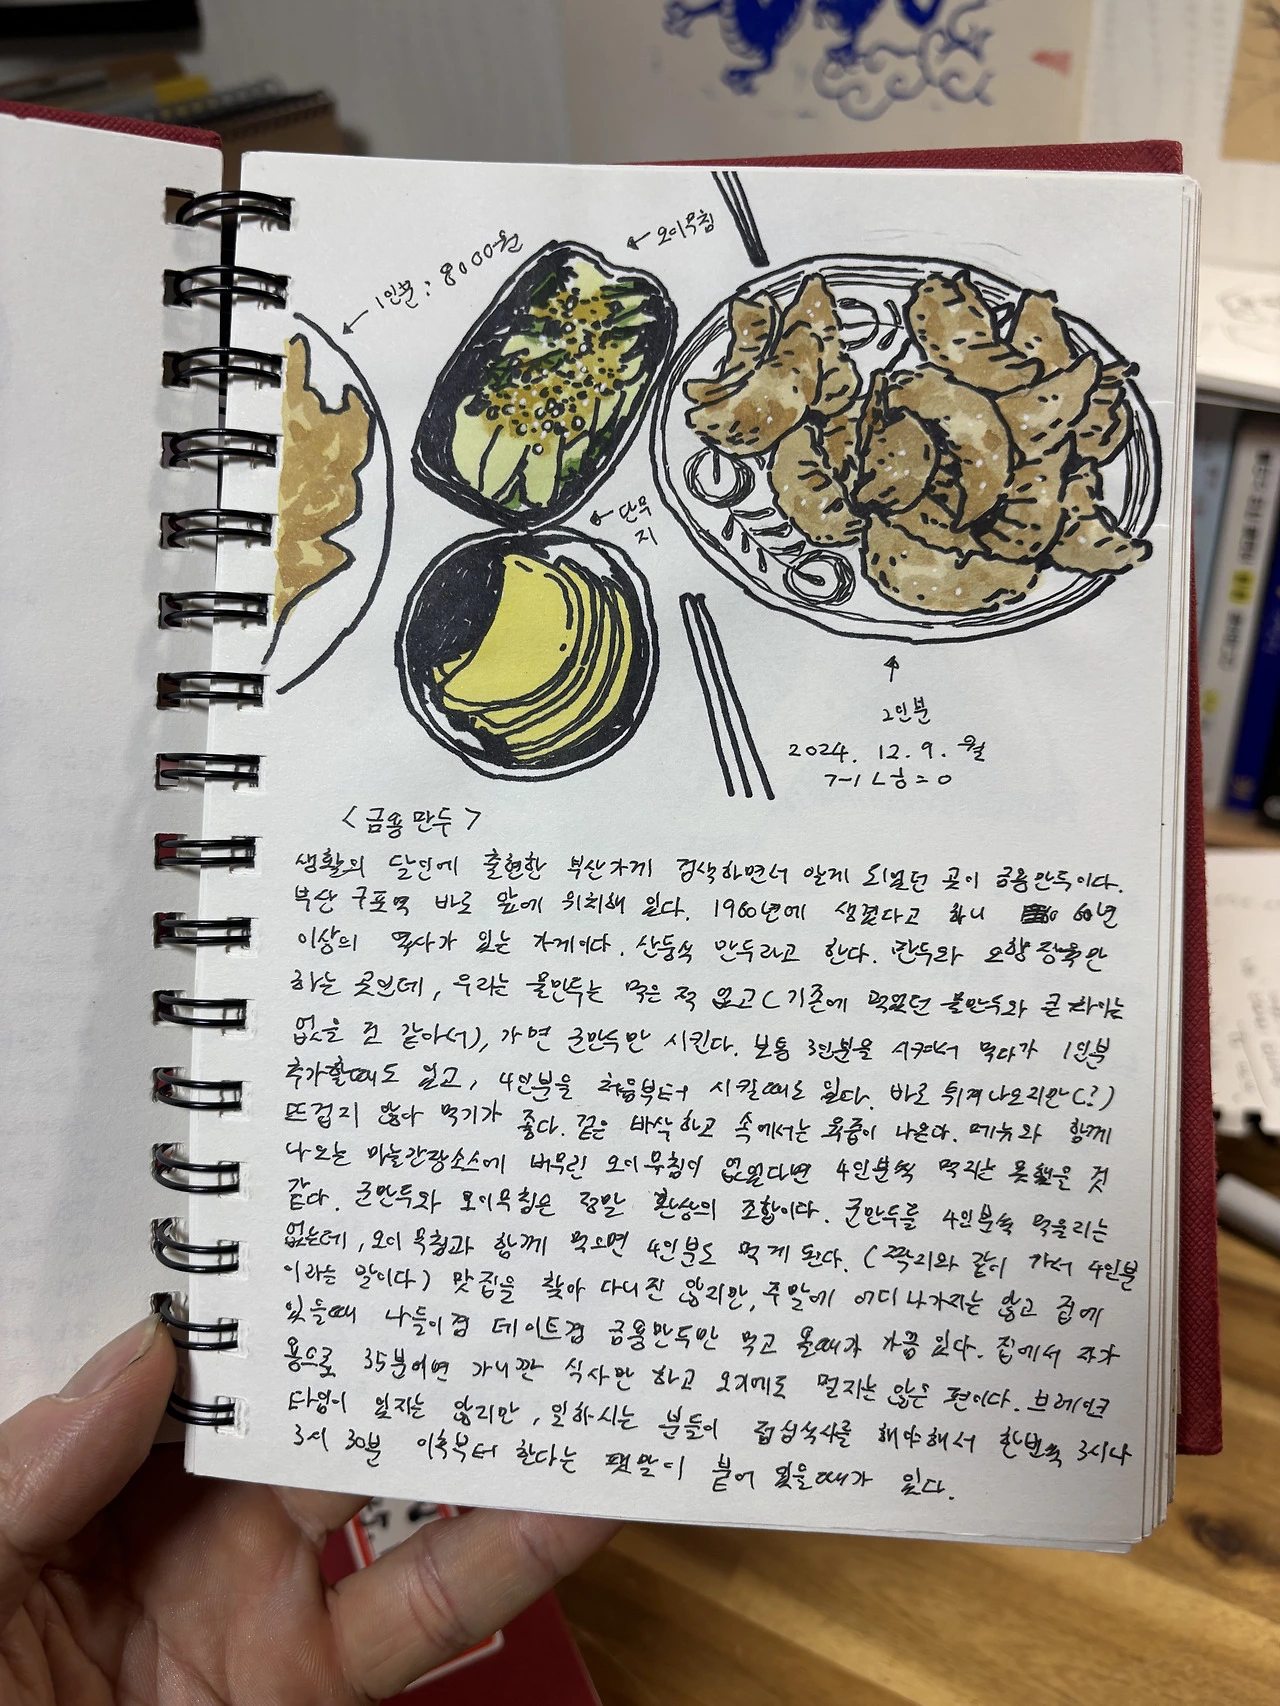 1인분 : 8000원
오이무침
단무
지
2인분
2024. 12. 9. 월
<금용만두>
생활의 달인에 출현한 부산가게 검색하면서 알게 되었던 곳이 금용만두이다.
부산 구포역 바로 앞에 위치해 있다. 1960년에 생겼다고 하니 60년
이상의 역사가 있는 가게이다. 산동식 만두라고 한다. 만두와 오향장육만
하는 곳인데, 우리는 물만두는 먹은 적 없고(기존에 먹었던 물만두와 큰 차이는
없을 것 같아서), 가면 군만두만 시킨다. 보통 3인분을 시켜서 먹다가 1인분
추가할때도 있고, 4인분을 처음부터 시킬때도 있다. 바로 튀겨나오지만(?)
뜨겁지 않아 먹기가 좋다. 겉은 바삭하고 속에서는 육즙이 나온다. 메뉴와 함께
나오는 마늘간장소스에 버무린 오이무침이 없었다면 4인분씩 먹지는 못했을 것
같다. 군만두와 오이무침은 정말 환상의 조합이다. 군만두를 4인분씩 먹을리는
없는데, 오이무침과 함께 먹으면 4인분도 먹게 된다. (짝지와 같이 가서 4인분
이라는 말이다) 맛집을 찾아 다니진 않지만, 주말에 어디 나가지는 않고 집에
있을때 나들이겸 데이트겸 금용만두만 먹고 올때가 가끔 있다. 집에서 자가
용으로 35분이면 가니깐 식사만 하고 오기에도 멀지는 않은 편이다. 브레이크
타임이 있지는 않지만, 일하시는 분들이 점심식사를 해야해서 한번씩 3시나
3시 30분 이후부터 한다는 팻말이 붙어 있을때가 있다.